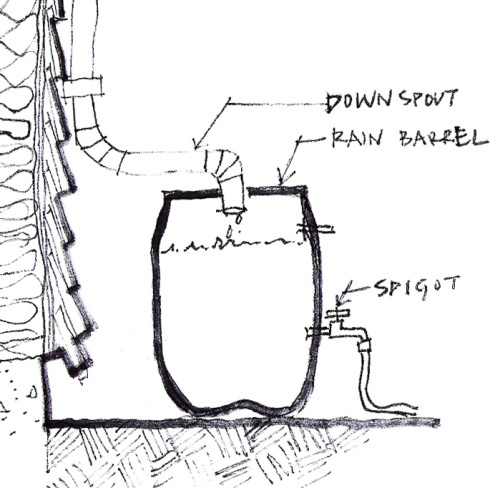 DOWN SPOUT
RAIN BARREL
SPIGOT